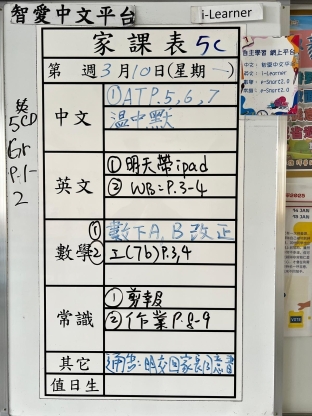 智愛中文平台
i-Learner
家課表 5C
第 週3月10日(星期一)
自主學習 網上平台
中文：智愛中文平台
英文：i-Learner
數學：e-Smart2.0
常識：e-Smart2.0
英
5CD
Gr
P.1-
2
中文
①ATP.5,6,7
溫中默
英文
①明天帶ipad
② WB=P.3-4
數學
① 數下A,B改正
② 工(7b)P.3,4
常識
①剪報
②作業P.8-9
其它
通告:明交回家長同意書
值日生